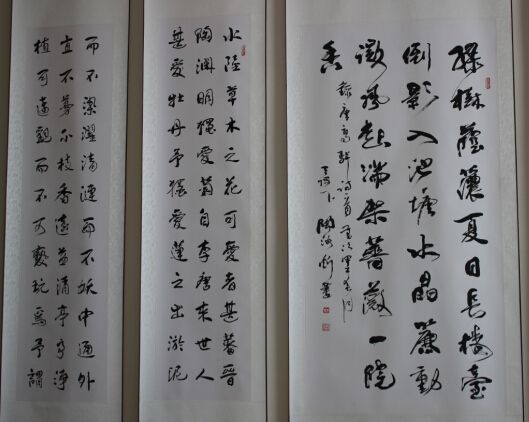 綠樹蔭濃夏日長樓臺
倒影入池塘水晶簾動
微風起滿架薔薇一院
香
錄唐高駢詩
水陸草木之花可愛者甚蕃晉
陶淵明獨愛菊自李唐來世人
甚愛牡丹予獨愛蓮之出淤泥
而不染濯清漣而不妖中通外
直不蔓不枝香遠益清亭亭淨
植可遠觀而不可褻玩焉予謂